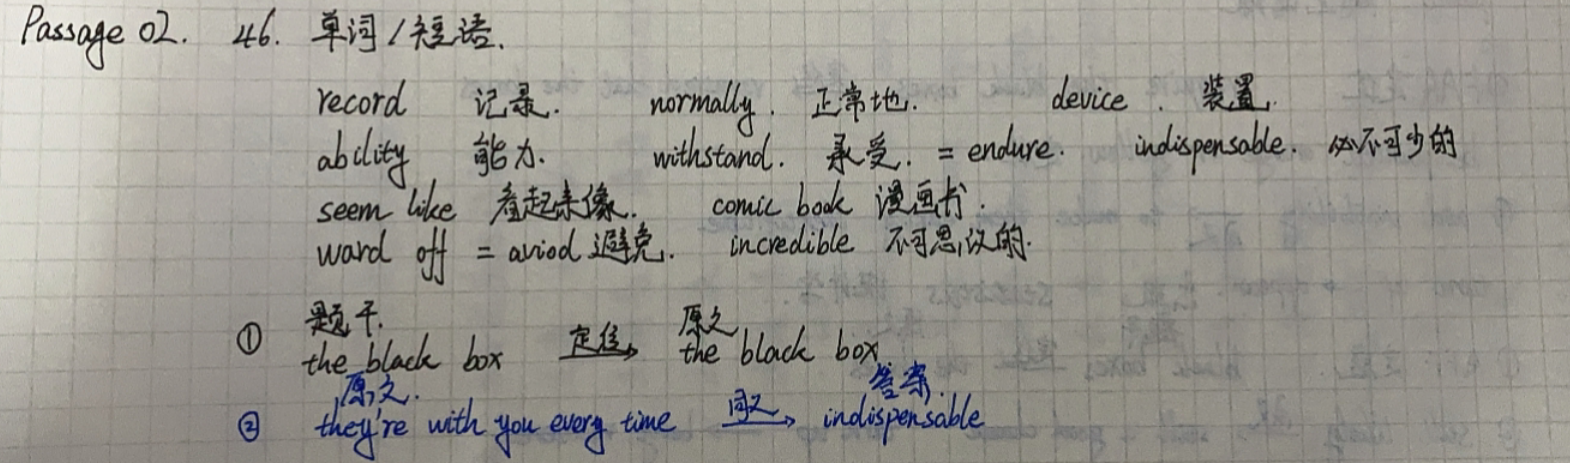 Passage 02. 46. 单词/短语.
record 记录. normally. 正常地. device. 装置.
ability 能力. withstand. 承受. = endure. indispensable. 必不可少的
seem like 看起来像. comic book 漫画书.
ward off = aviod 避免. incredible 不可思议的.
题干. 原文
① the black box 定位→ the black box
原文. 答案.
② they're with you every time 同义→ indispensable